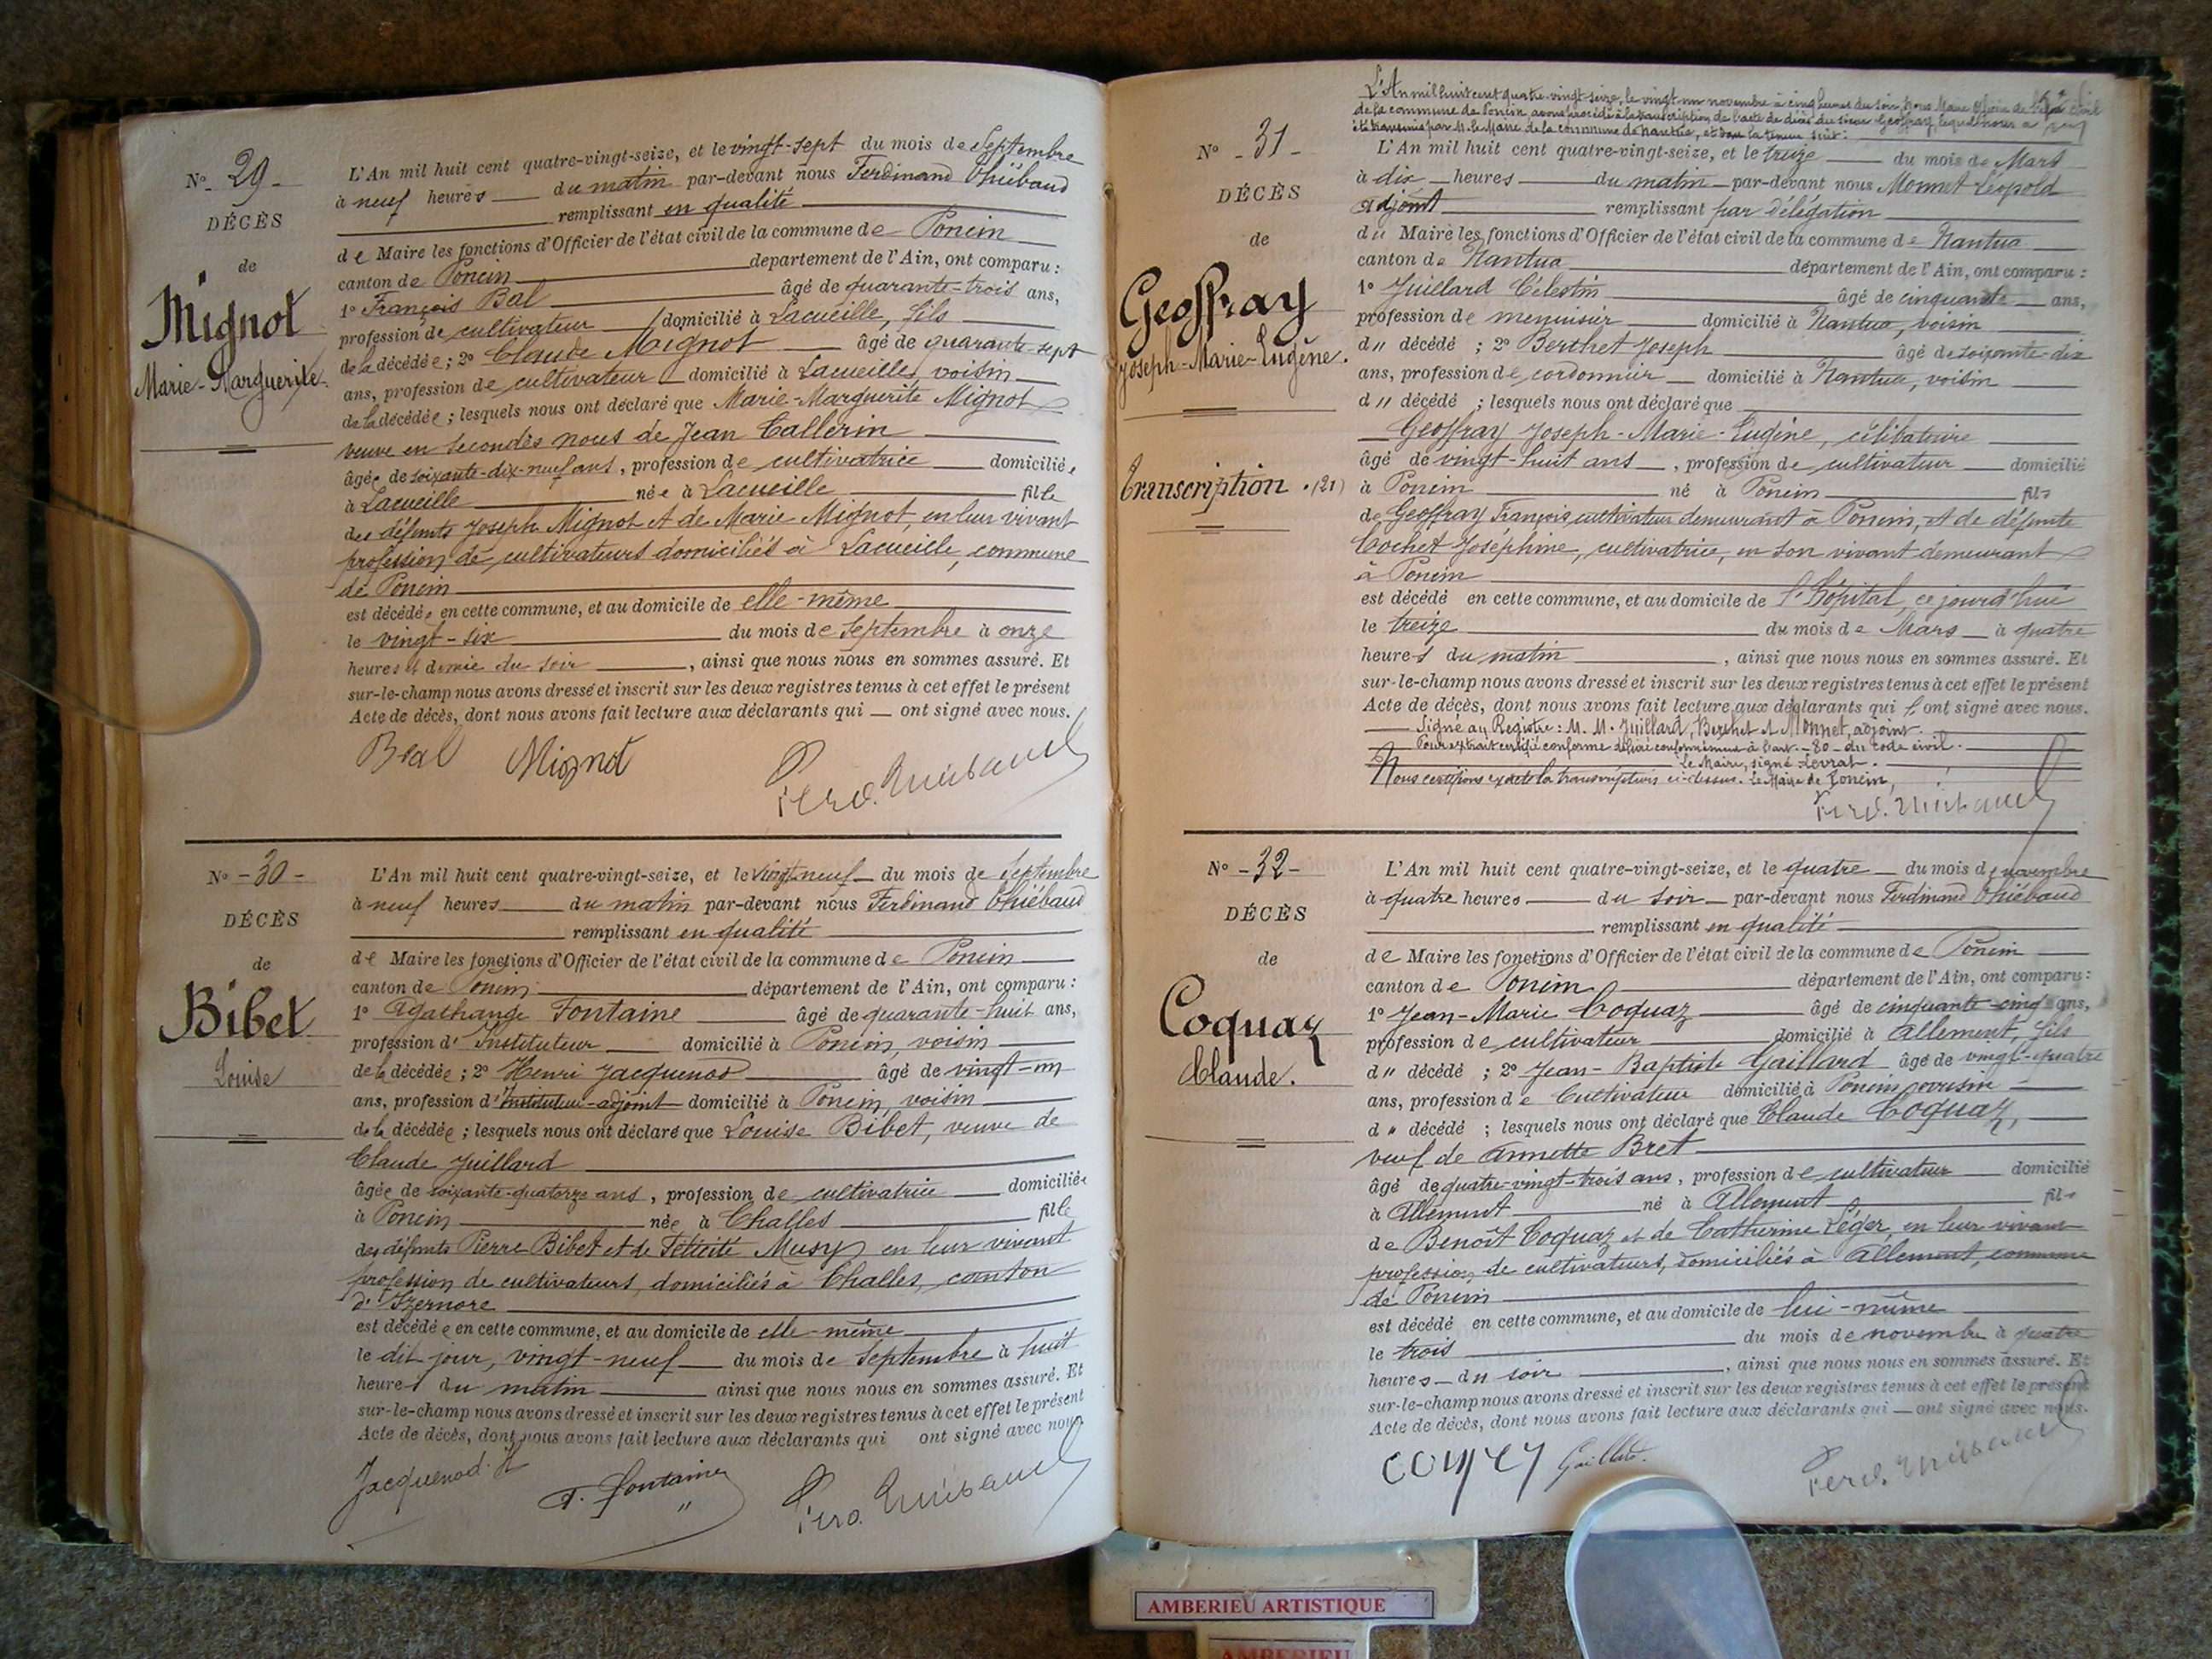 N° - 29 -
DÉCÈS
de
Mignot
Marie-Marguerite.
L'An mil huit cent quatre-vingt-seize, et le vingt-sept du mois de Septembre
à neuf heures du matin par-devant nous Ferdinand Thiébaud
remplissant en qualité
de Maire les fonctions d'Officier de l'état civil de la commune de Poncin
canton de Poncin département de l'Ain, ont comparu :
1° François Bal âgé de quarante-trois ans,
profession de cultivateur domicilié à Lacueille, fils
de la décédée ; 2° Claude Mignot âgé de quarante-sept
ans, profession de cultivateur domicilié à Lacueille, voisin
de la décédée ; lesquels nous ont déclaré que Marie-Marguerite Mignot
veuve en secondes noces de Jean Tallerin
âgée de soixante-dix-neuf ans, profession de cultivatrice domiciliée
à Lacueille née à Lacueille fille
des défunts Joseph Mignot et de Marie Mignot, en leur vivant
profession de cultivateurs domiciliés à Lacueille, commune
de Poncin
est décédée en cette commune, et au domicile de elle-même
le vingt-six du mois de Septembre à onze
heures et demie du soir, ainsi que nous nous en sommes assuré. Et
sur-le-champ nous avons dressé et inscrit sur les deux registres tenus à cet effet le présent
Acte de décès, dont nous avons fait lecture aux déclarants qui — ont signé avec nous.
Bal Mignot Ferd. Thiébaud
N° - 30 -
DÉCÈS
de
Bibet
Louise
L'An mil huit cent quatre-vingt-seize, et le vingt-neuf du mois de Septembre
à neuf heures du matin par-devant nous Ferdinand Thiébaud
remplissant en qualité
de Maire les fonctions d'Officier de l'état civil de la commune de Poncin
canton de Poncin département de l'Ain, ont comparu :
1° Agathange Fontaine âgé de quarante-huit ans,
profession d'Instituteur domicilié à Poncin, voisin
de la décédée ; 2° Henri Jacquenod âgé de vingt-un
ans, profession d'Instituteur-adjoint domicilié à Poncin, voisin
de la décédée ; lesquels nous ont déclaré que Louise Bibet, veuve de
Claude Juillard
âgée de soixante-quatorze ans, profession de cultivatrice domiciliée
à Poncin née à Challes fille
des défunts Pierre Bibet et de Félicité Musy en leur vivant
profession de cultivateurs, domiciliés à Challes, canton
d'Izernore
est décédée en cette commune, et au domicile de elle-même
le dit jour, vingt-neuf du mois de Septembre à huit
heures du matin ainsi que nous nous en sommes assuré. Et
sur-le-champ nous avons dressé et inscrit sur les deux registres tenus à cet effet le présent
Acte de décès, dont nous avons fait lecture aux déclarants qui ont signé avec nous
Jacquenod. H A. Fontaine Ferd. Thiébaud
L'An mil huit cent quatre-vingt-seize, le vingt un novembre à cinq heures du soir, Nous Maire Officier de l'état civil
de la commune de Poncin avons procédé à la transcription de l'acte de décès du sieur Geoffray, lequel nous a
été transmis par M. le Maire de la commune de Nantua, et dont la teneur suit :
N° - 31 -
DÉCÈS
de
Geoffray
Joseph-Marie-Eugène.
Transcription. (21)
L'An mil huit cent quatre-vingt-seize, et le treize du mois de Mars
à dix heures du matin par-devant nous Monnet Léopold
adjoint remplissant par délégation
du Maire les fonctions d'Officier de l'état civil de la commune de Nantua
canton de Nantua département de l'Ain, ont comparu :
1° Juillard Célestin âgé de cinquante ans,
profession de menuisier domicilié à Nantua, voisin
d" décédé ; 2° Berthet Joseph âgé de soixante-dix
ans, profession de cordonnier domicilié à Nantua, voisin
d" décédé ; lesquels nous ont déclaré que
Geoffray Joseph-Marie-Eugène, célibataire
âgé de vingt-huit ans, profession de cultivateur domicilié
à Poncin né à Poncin fils
de Geoffray François cultivateur demeurant à Poncin, et de défunte
Cochet Joséphine, cultivatrice, en son vivant demeurant
à Poncin
est décédé en cette commune, et au domicile de l'Hôpital, ce jourd'hui
le treize du mois de Mars à quatre
heures du matin, ainsi que nous nous en sommes assuré. Et
sur-le-champ nous avons dressé et inscrit sur les deux registres tenus à cet effet le présent
Acte de décès, dont nous avons fait lecture aux déclarants qui l'ont signé avec nous.
Signé au Registre : M. M. Juillard, Berthet et Monnet, adjoint.
Pour extrait certifié conforme délivré conformément à l'art. - 80 - du code civil.
Le Maire, signé
Nous certifions exacte la transcription ci-dessus. Le Maire de Poncin,
Ferd. Thiébaud
N° - 32 -
DÉCÈS
de
Coquaz
Claude.
L'An mil huit cent quatre-vingt-seize, et le quatre du mois de novembre
à quatre heures du soir par-devant nous Ferdinand Thiébaud
remplissant en qualité
de Maire les fonctions d'Officier de l'état civil de la commune de Poncin
canton de Poncin département de l'Ain, ont comparu :
1° Jean-Marie Coquaz âgé de cinquante-cinq ans,
profession de cultivateur domicilié à Allement, fils
d" décédé ; 2° Jean-Baptiste Gaillard âgé de vingt-quatre
ans, profession de Cultivateur domicilié à Poncin
d" décédé ; lesquels nous ont déclaré que Claude Coquaz,
veuf de Annette Bret
âgé de quatre-vingt-trois ans, profession de cultivateur domicilié
à Allement né à Allement fils
de Benoît Coquaz et de Catherine Léger, en leur vivant
profession de cultivateurs, domiciliés à Allement, commune
de Poncin
est décédé en cette commune, et au domicile de lui-même
le trois du mois de novembre à quatre
heures du soir, ainsi que nous nous en sommes assuré. Et
sur-le-champ nous avons dressé et inscrit sur les deux registres tenus à cet effet le présent
Acte de décès, dont nous avons fait lecture aux déclarants qui — ont signé avec nous.
Gaillard. Ferd. Thiébaud
AMBERIEU ARTISTIQUE
AMBERIEU